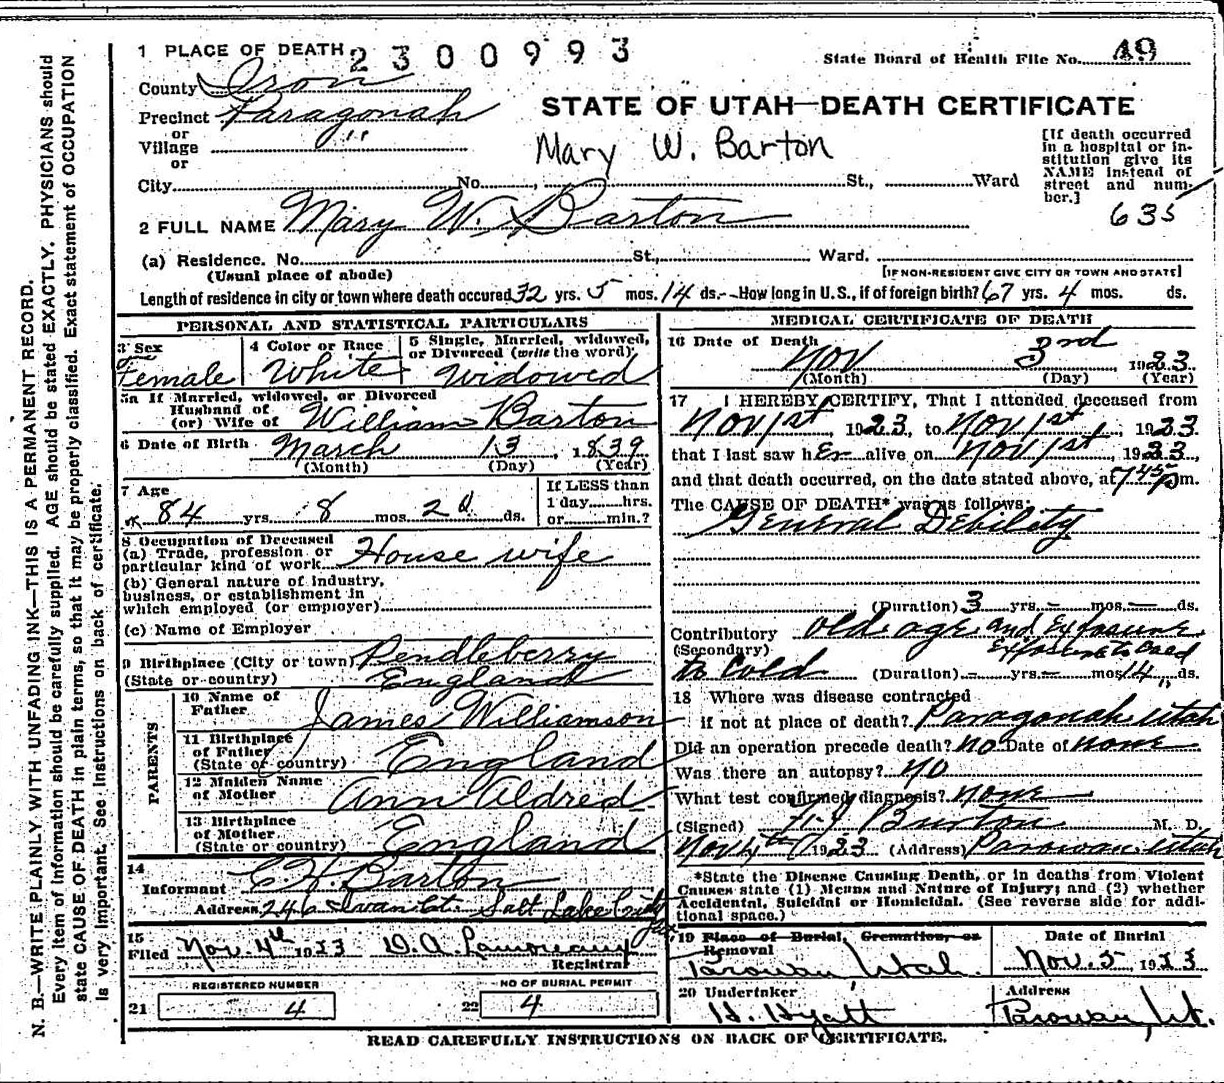 N. B.—WRITE PLAINLY WITH UNFADING INK—THIS IS A PERMANENT RECORD.
Every item of information should be carefully supplied. AGE should be stated EXACTLY. PHYSICIANS should
state CAUSE OF DEATH in plain terms, so that it may be properly classified. Exact statement of OCCUPATION
is very important. See instructions on back of certificate.
1 PLACE OF DEATH 2300993
State Board of Health File No. 49
County Iron
Precinct Paragonah
or
Village
or
STATE OF UTAH—DEATH CERTIFICATE
Mary W. Barton
[If death occurred
in a hospital or in-
stitution give its
NAME instead of
street and num-
ber.]
635
City No. , St., Ward
2 FULL NAME Mary W. Barton
(a) Residence. No. St., Ward.
(Usual place of abode) [IF NON-RESIDENT GIVE CITY OR TOWN AND STATE]
Length of residence in city or town where death occured 32 yrs. 5 mos. 14 ds.- How long in U.S., if of foreign birth? 67 yrs. 4 mos. ds.
PERSONAL AND STATISTICAL PARTICULARS
3 Sex
Female
4 Color or Race
White
5 Single, Married, widowed,
or Divorced (write the word)
Widowed
5a If Married, widowed, or Divorced
Husband of
(or) Wife of William Barton
6 Date of Birth March 13, 1839
(Month) (Day) (Year)
7 Age
84 yrs. 8 mos. ds.
If LESS than
1 day......hrs.
or......min.?
8 Occupation of Deceased
(a) Trade, profession or
particular kind of work House wife
(b) General nature of industry,
business, or establishment in
which employed (or employer)
(c) Name of Employer
9 Birthplace (City or town) Pendleberry
(State or country) England
PARENTS
10 Name of
Father James Williamson
11 Birthplace
of Father
(State or country) England
12 Maiden Name
of Mother Ann Aldred
13 Birthplace
of Mother
(State or country) England
14
Informant C H. Barton
Address 246 Ct. Salt Lake City
15
Filed Nov. 4th 1923 D. A. Lamoreaux
Registrar
REGISTERED NUMBER
21 4
NO OF BURIAL PERMIT
22 4
MEDICAL CERTIFICATE OF DEATH
16 Date of Death
Nov 3rd 1923
(Month) (Day) (Year)
17 I HEREBY CERTIFY, That I attended deceased from
Nov 1st, 1923, to Nov 1st, 1923
that I last saw her alive on Nov 1st, 1923,
and that death occurred, on the date stated above, at 7 45 Pm.
The CAUSE OF DEATH* was as follows:
General Debility
(Duration) 3 yrs. - mos. - ds.
Contributory old age and Exposure
(Secondary) Exposure to Cold
to Cold (Duration) - yrs. - mos. 14 ds.
18 Where was disease contracted
if not at place of death? Paragonah Utah
Did an operation precede death? No Date of none
Was there an autopsy? No
What test confirmed diagnosis? none
(Signed) Burton M. D.
Nov 4th 1923 (Address) Parowan Utah
*State the Disease Causing Death, or in deaths from Violent
Causes state (1) Means and Nature of Injury; and (2) whether
Accidental, Suicidal or Homicidal. (See reverse side for addi-
tional space.)
19 Place of Burial, Cremation, or
Removal
Parowan, Utah.
Date of Burial
Nov. 5 1923
20 Undertaker
H. Hyatt
Address
Parowan, Ut.
READ CAREFULLY INSTRUCTIONS ON BACK OF CERTIFICATE.